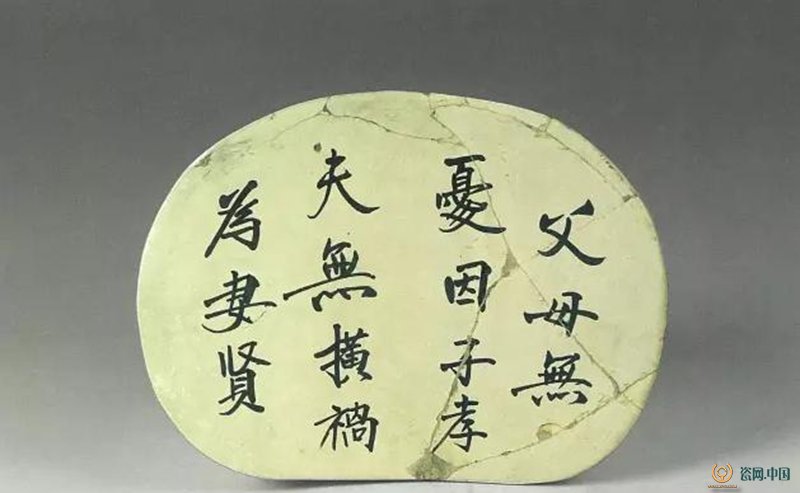 父母無
憂因子孝
夫無横禍
為妻贤
瓷网.中国